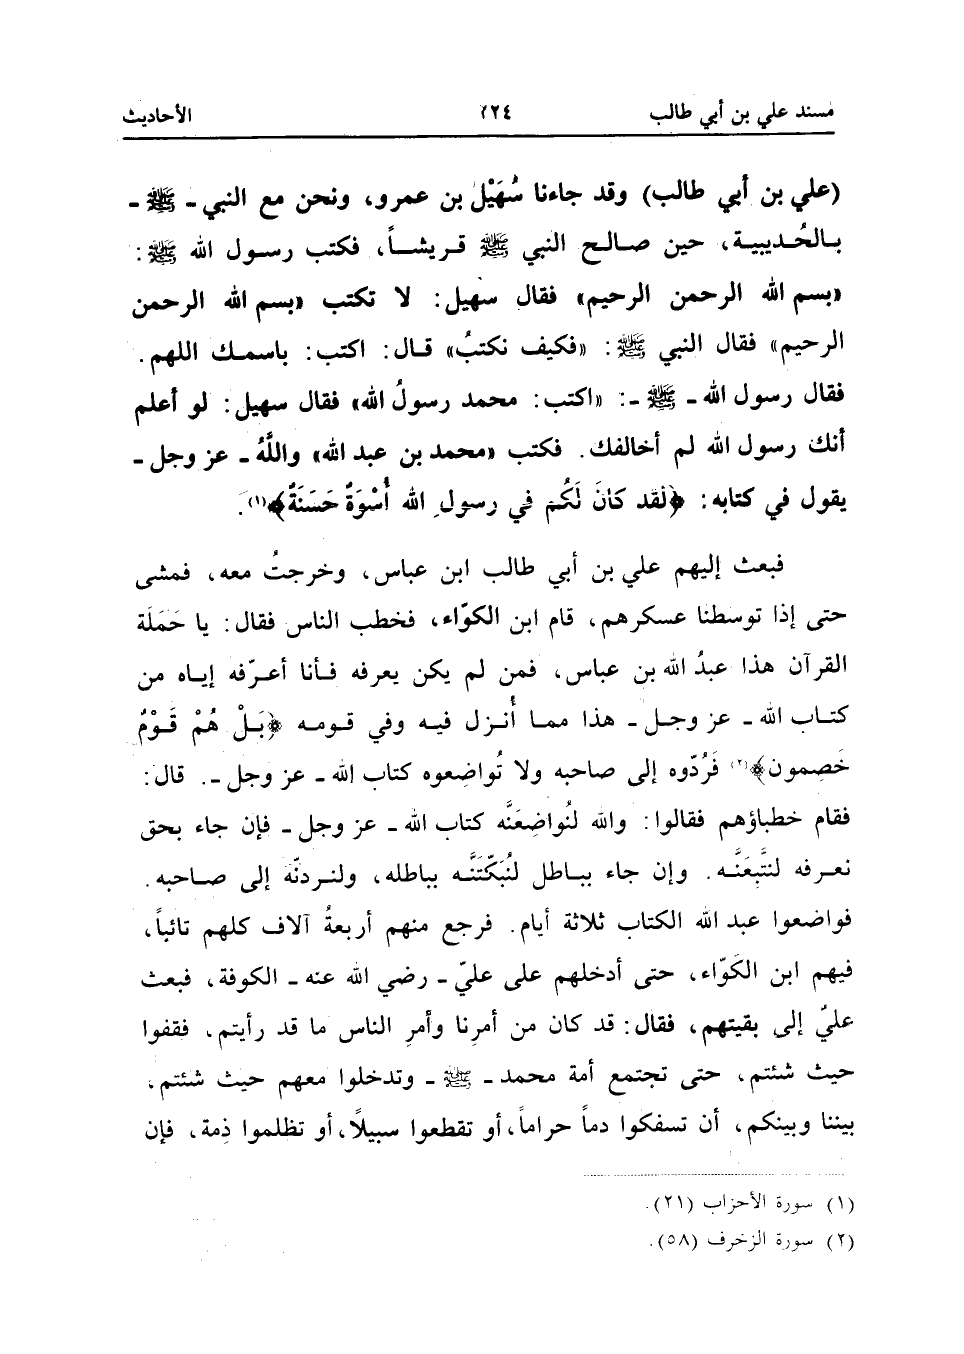 مسند علي بن أبي طالب ٢٢٤ الأحاديث
(علي بن أبي طالب) وقد جاءنا سُهَيْل بن عمرو، ونحن مع النبي ـ ﷺ ـ
بالحُديبية، حين صالح النبي ﷺ قريشاً، فكتب رسول الله ﷺ:
«بسم الله الرحمن الرحيم» فقال سهيل: لا تكتب «بسم الله الرحمن
الرحيم» فقال النبي ﷺ: «فكيف نكتبُ» قال: اكتب: باسمك اللهم.
فقال رسول الله ـ ﷺ ـ: «اكتب: محمد رسولُ الله» فقال سهيل: لو أعلم
أنك رسول الله لم أخالفك. فكتب «محمد بن عبد الله» واللَّهُ ـ عز وجل ـ
يقول في كتابه: ﴿لقد كانَ لَكُم في رسول الله أُسْوَةٌ حَسَنَةٌ﴾(١).
فبعث إليهم علي بن أبي طالب ابن عباس، وخرجتُ معه، فمشى
حتى إذا توسطنا عسكرهم، قام ابن الكوّاء، فخطب الناس فقال: يا حَمَلَة
القرآن هذا عبدُ الله بن عباس، فمن لم يكن يعرفه فأنا أعرّفه إياه من
كتاب الله ـ عز وجل ـ هذا مما أُنزل فيه وفي قومه ﴿بَلْ هُمْ قَوْمٌ
خَصِمون﴾(٢) فَرُدّوه إلى صاحبه ولا تُواضِعوه كتاب الله ـ عز وجل ـ. قال:
فقام خطباؤهم فقالوا: والله لنُواضعَنَّه كتاب الله ـ عز وجل ـ فإن جاء بحق
نعرفه لنتَّبِعَنَّه. وإن جاء بباطل لنُبَكّتَنَّه بباطله، ولنردنّه إلى صاحبه.
فواضعوا عبد الله الكتاب ثلاثة أيام. فرجع منهم أربعةُ آلاف كلهم تائباً،
فيهم ابن الكَوّاء، حتى أدخلهم على عليّ ـ رضي الله عنه ـ الكوفة، فبعث
عليٌّ إلى بقيتهم، فقال: قد كان من أمرِنا وأمرِ الناس ما قد رأيتم، فقفوا
حيث شئتم، حتى تجتمع أمة محمد ـ ﷺ ـ وتدخلوا معهم حيث شئتم،
بيننا وبينكم، أن تسفكوا دماً حراماً، أو تقطعوا سبيلاً، أو تظلموا ذِمة، فإن
(١) سورة الأحزاب (٢١).
(٢) سورة الزخرف (٥٨).